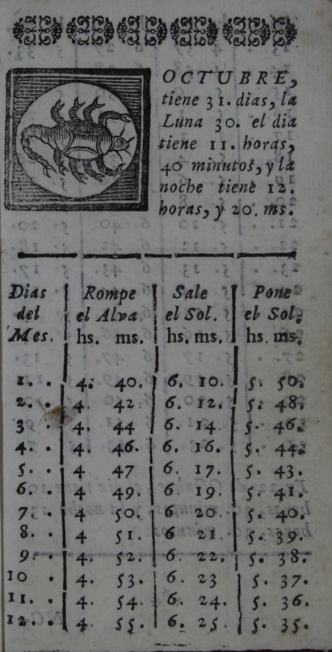 OCTUBRE,
tiene 31. dias, la
Luna 30. el dia
tiene 11. horas,
40 minutos, y la
noche tiene 12.
horas, y 20. ms.
Dias Rompe Sale Pone
del el Alva. el Sol. el Sol.
Mes. hs. ms. hs. ms. hs. ms.
1. . 4. 40. 6. 10. 5. 50.
2. . 4. 42 6. 12. 5. 48.
3 . 4. 44 6. 14. 5. 46.
4. . 4. 46. 6. 16. 5. 44.
5. . 4. 47 6. 17. 5. 43.
6. . 4. 49. 6. 19. 5. 41.
7. . 4 50. 6. 20. 5. 40.
8. . 4 51. 6 21 5. 39.
9. . 4. 52. 6. 22. 5. 38.
10 . 4. 53. 6. 23 5. 37.
11. . 4. 54. 6. 24. 5. 36.
12. . 4 55. 6. 25. 5. 35.